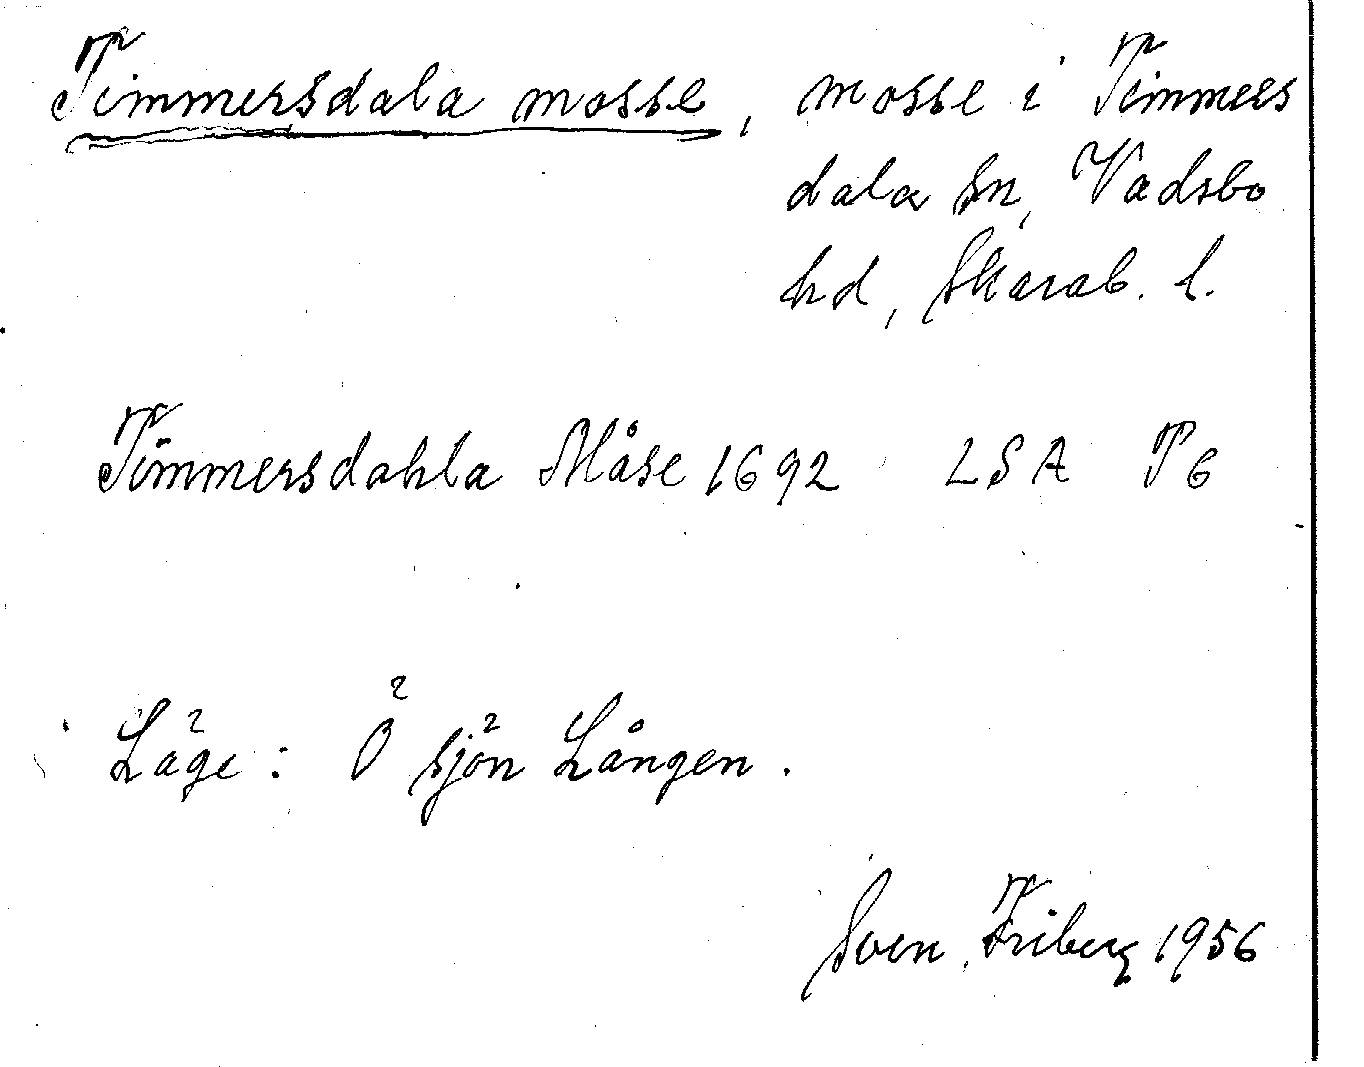 Timmersdala mosse, mosse i Timmers
dala sn, Vadsbo
hd, Skarab. l.
Timmersdahla Måse 1692 LSA P6
Läge: Ö sjön Lången.
Sven Friberg 1956